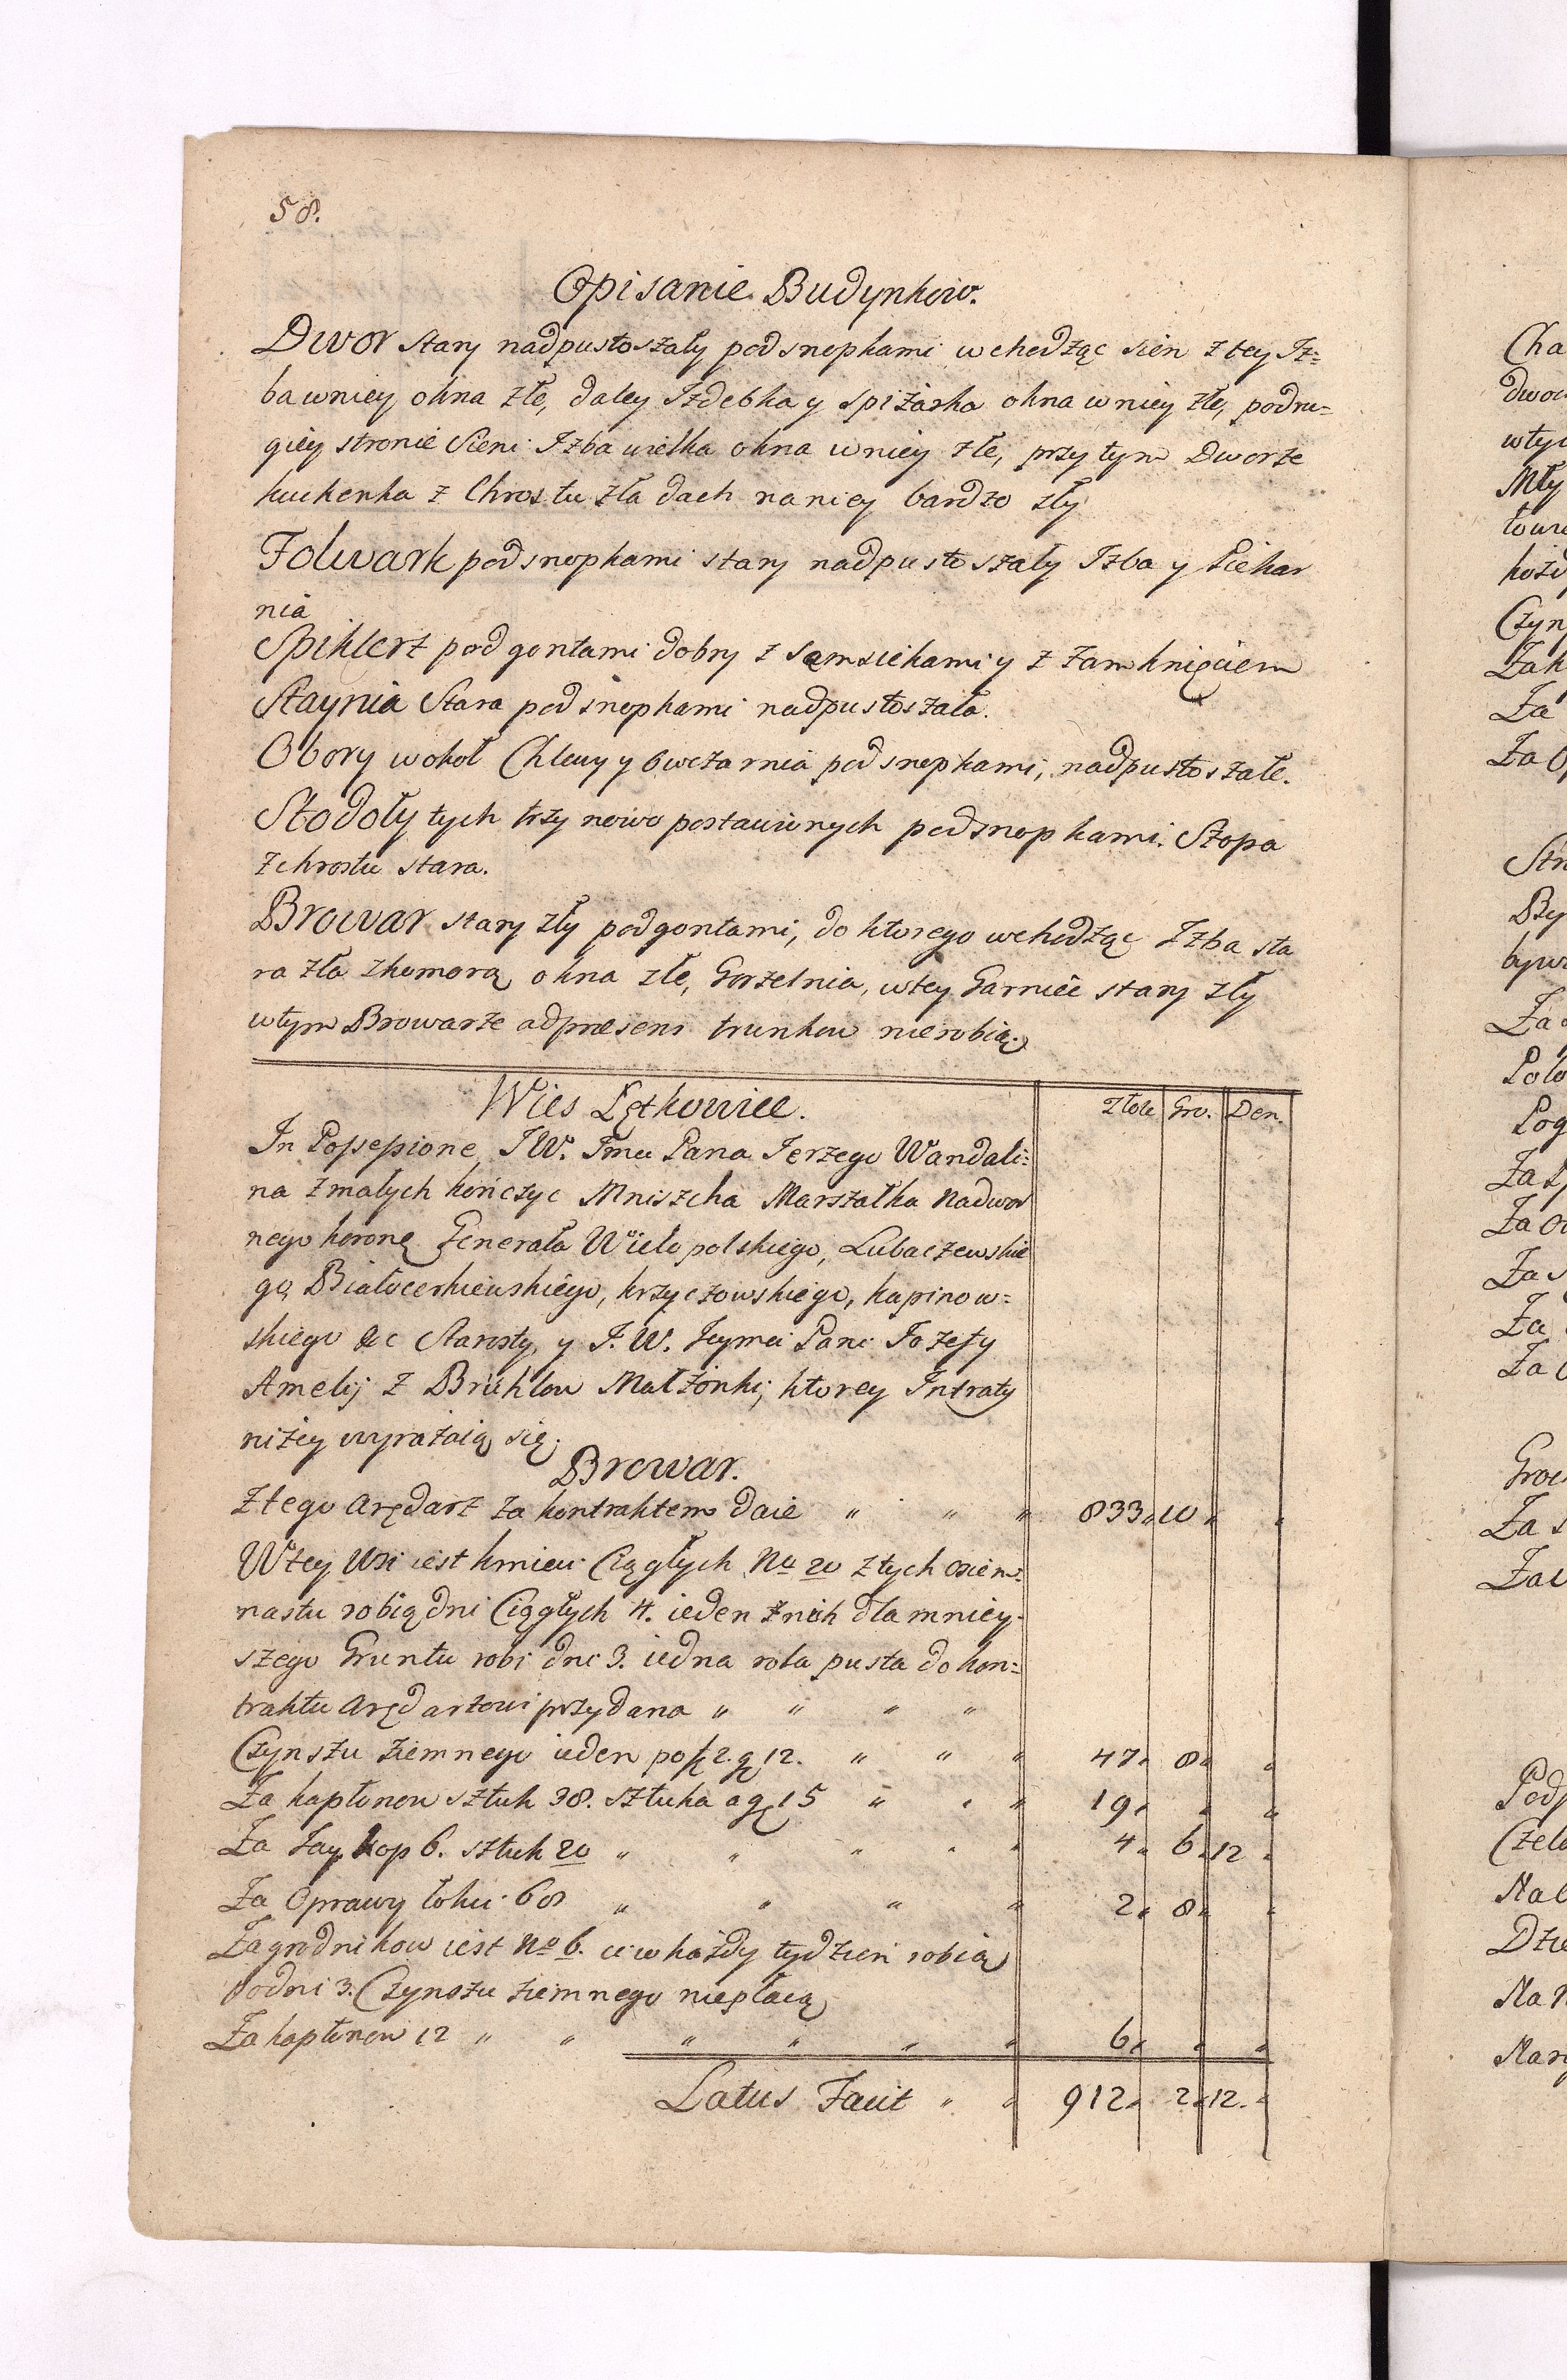 58.
Opisanie Budynkow.
Dwor stary nadpustoszały pod snopkami wchodząc sien z tey Iz=
ba wniey okna złe, daley Izdebka y Spiżarka okna wniey złe, podru=
giey stronie Sieni Izba wielka okna wniey złe, przy tym Dworze
kuchenka z Chrostu zła dach naniey bardzo zły
Folwark pod snopkami stary nadpustoszały Izba y Piekar
nia
Spiklerz pod gontami dobry z Sąmsiekami y z zamknięciem
Staynia Stara pod snopkami nadpustoszała.
Obory wokoł Chlewy y Owczarnia pod snopkami, nadpustoszałe.
Stodoły tych trzy nowo postawionych pod snopkami. Szopa
zchrostu stara.
Browar stary zły pod gontami, do ktorego wchodząc Izba sta
ra zła zkomorą okna złe, Gorzelnia, wtey Garniec stary zły
wtym Browarze adpræsens trunkow nierobią.
Wies Lętkowice. Złote Gro. Den.
In Possessione J W. Jmci Pana Jerzego Wandali=
na z małych kończyc Mniszcha Marszałka Nadwor
nego koronę Generała Wielopolskiego, Lubaczewskie
go Białocerkiewskiego, krzyczowskiego, kapinow=
skiego &c Starosty, y J. W. Jeymci Pani Jozefy
Amelij z Bruhlow Małżonki, ktorey Intraty
niżey wyrażaią się.
Browar.
Ztego Arędarz za kontraktem daie " " " 833 " 10 " "
Wtey Wsi iest kmieci Ciągłych No 20 z tych osiem=
nastu robią dni Ciągłych 4. ieden znich dla mniey
szego Gruntu robi dni 3. iedna rola pusta do kon=
traktu Arędarzowi przydana " " " "
Czynszu ziemnego ieden po f 2. g 12. " " " 47 " 8 " "
Za kapłonow sztuk 38. sztuka a g 15 " " " 19 " " "
Za Jay kop 6. sztuk 20 " " " " " 4 " 6 " 12 "
Za Oprawy łokci 68 " " " " 2 " 8 " "
Zagrodnikow iest No 6. ci w każdy tydzień robią
podni 3. Czynszu ziemnego niepłacą
Za kapłonow 12 " " " " " " 6 " " "
Latus Facit " " 912 " 2 " 12. "
Cha
dwo
wtyc
Mły
Czyn
Zak
Za
Za O
By
Za
Poło
Pog
Za
Za
Za
Za
Za
Groc
Za s
Za
Podp
Czela